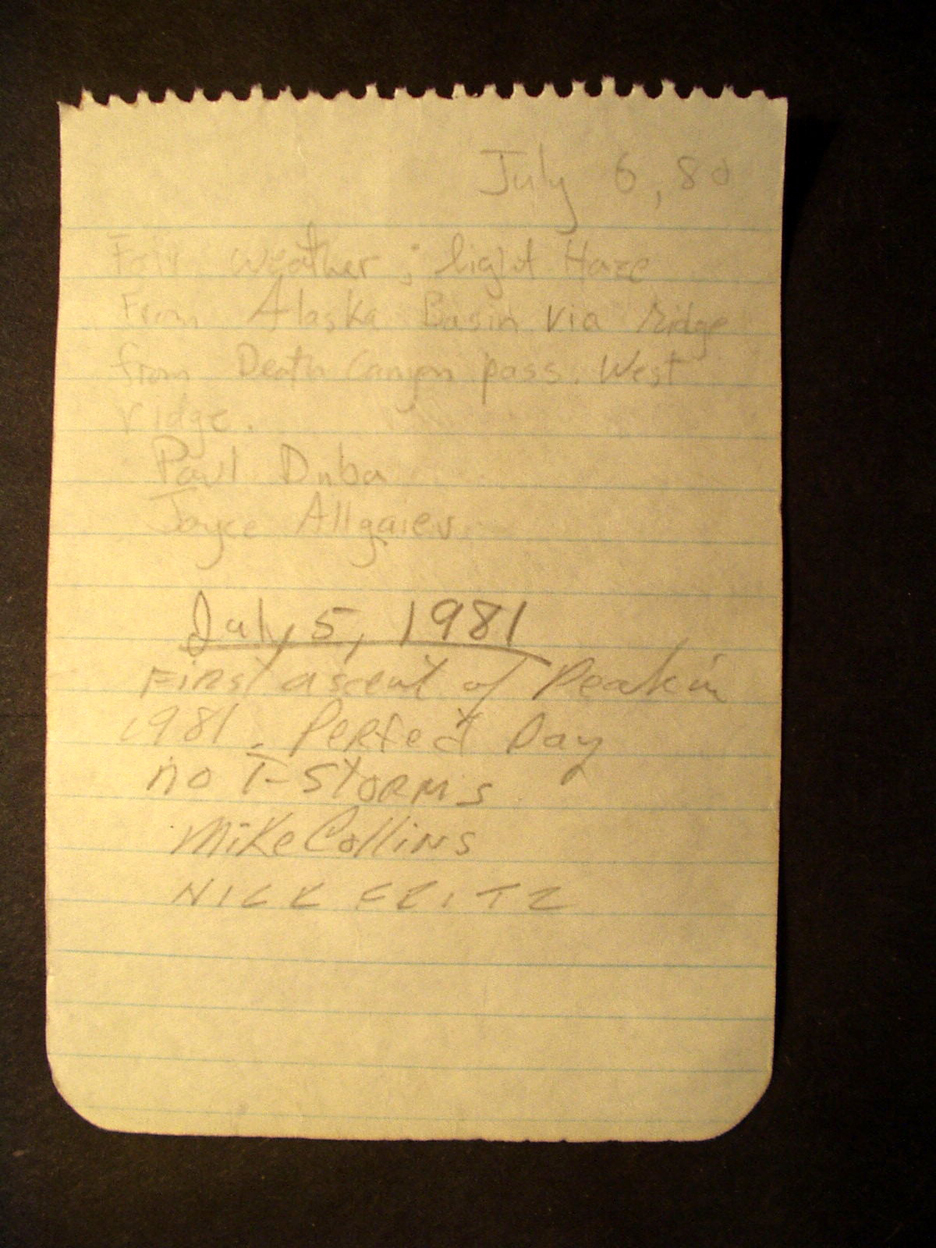 July 6, 80
Fair weather ; light Haze
From Alaska Basin via ridge
from Death Canyon pass. West
ridge.
Paul Duba
Joyce Allgaier
July 5, 1981
First ascent of Peak in
1981. Perfect Day
no T-Storms
Mike Collins
NICK FRITZ